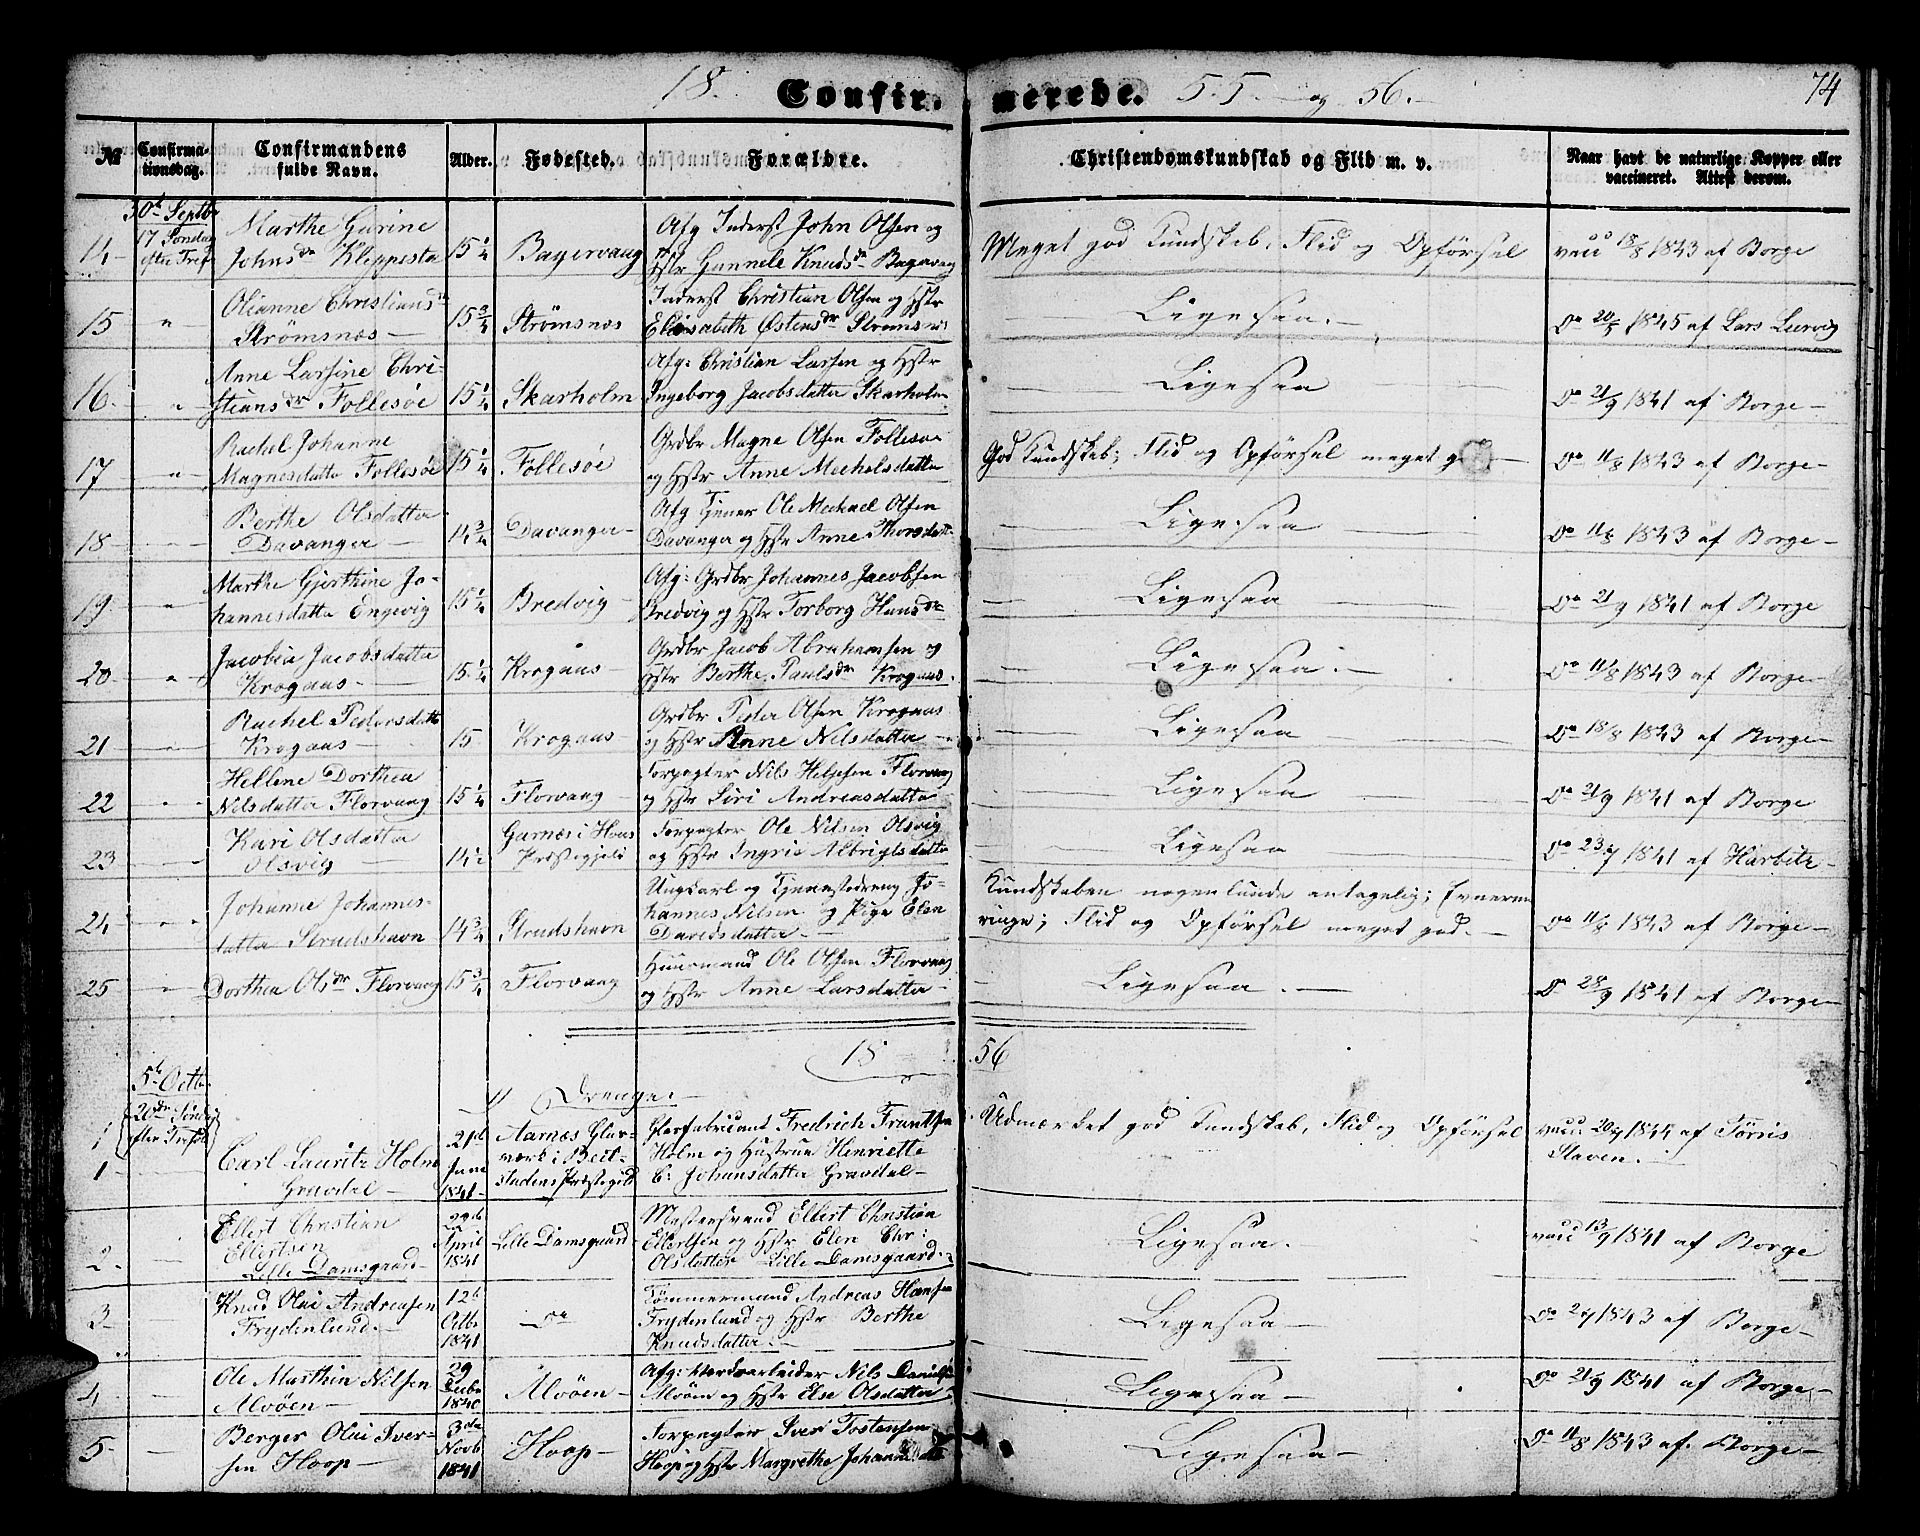 18 Confirmerede. 55. og 56.
74
No
Confirmationsdag.
Confirmandens fulde Navn.
Alder.
Fødested.
Forældre.
Christendomskundskab og Flid m. v.
Naar havt de naturlige Kopper eller vaccineret. Attest derom.
30te Septbr
17 Søndag efter Tref
14 Marthe Gurine
Johnsdr Klippesta 15 1/4 Bagervang
Afg Inderst John Olsen og
Hstr Gunnele Knudsdr
Meget god Kundskab, Flid og Opførsel
vacc 18/8 1843 af Borge
15 " Olianne Christiansdr
Strømsnæs 15 3/4 Strømsnæs
Inderst Christian Olsen og Hstr
Elisabeth Østensdr Strømsnæs
Ligesaa.
Do 20/5 1845 af Lars
16. " Anne Larsine Chri-
stiansdr Follesøe 15 1/4 Skarholm
Afg: Christian Larsen og Hstr
Ingeborg Jacobsdatter Skarholm
Ligesaa
Do 21/9 1841 af Borge
17 " Rachel Johanne
Magnesdatter Follesøe 15 1/4 Follesøe
Grdbr Magne Olsen Follesøe
og Hstr Anne Mechelsdatter
God Kundskab; Flid og Opførsel meget
Do 11/8 1843 af Borge
18 Berthe Olsdatter
Davanger 14 3/4 Davanger
Afg Tjener Ole Mechael Olsen
Davanger og Hstr Anne Thorsdatter
Ligesaa
Do 11/8 1843 af Borge
19 " Marthe Gjerthine Jo-
hannesdatter Engevig 15 1/4 Bredvig
Afg: Grdbr Johannes Jacobsen
Bredvig og Hstr Torborg Hansdr
Ligesaa
Do 21/9 1841 af Borge
20 " Jacobia Jacobsdatter
Krogaas 15 1/4 Krogaas
Grdbr Jacob Abrahamsen og
Hstr Berthe Paulsdr Krogaas.
Ligesaa.
Do 11/8 1843 af Borge
21 " Rachel Pedersdatter
Krogaas 15 Krogaas
Grdbr Peder Olsen Krogaas
og Hstr Anne Nilsdatter
Ligesaa
Do 18/8 1843 af Borge
22 " Hellene Dorthea
Nilsdatter Florvaag 15 1/4 Florvaag
Forpagter Nils Helgesen Florvaag
og Hstr Siri Andreasdatter
Ligesaa
Do 21/9 1841 af Borge
23 Kari Olsdatter
Olsvig 14 1/2 Garnæs i Haus
Præstegjeld
Forpagter Ole Nilsen Olsvig
og Hstr Ingrid Albrigtsdatter
Ligesaa
Do 23/7 1841 af Harbitz
24 " Johanne Johannes-
datter Strudshavn 14 3/4 Strudshavn
Ungkarl og Tjenestedreng Jo-
hannes Nilsen og Pige Elen
Davidsdatter
Kundskaben nogenlunde antagelig; Evnerne
ringe; Flid og Opførsel meget god.
Do 11/8 1843 af Borge
25 " Dorthea Olsdr Florvaag 15 3/4 Florvaag
Huusmand Ole Olsen Florvaag
og Hstr Anne Larsdatter
Ligesaa.
Do 28/9 1841 af Borge
18 56
Drenge.
5te Octbr
20de Søndag
efter Trefol
1 Carl Lauritz Holm
Gravdal
21de
June
1841
Aarnæs Glas-
værk i Beit-
stadens Præstegjeld
Glasfabricant Fredrich Frantsen
Holm og Hustrue Henriette
C: Johansdatter Gravdal
Udmærket god Kundskab, Flid og Opførsel
vacc 1844 af Tørris
Slaven.
2. Ellert Christian
Ellertsen
Lille Damsgaard
22de
April
1841
Lille Damsgaard
Mestersvend Ellert Christian
Ellertsen og Hstr Elen Chr:
Olsdatter Lille Damsgaard.
Ligesaa.
vacc 13/9 1841 af Borge
3 Knud Olai Andreasen
Frydenlund
12te
Octbr
1841
Do
Tømmermand Andreas Hansen
Frydenlund og Hstr Berthe
Knudsdatter
Ligesaa
Do 1843 af Borge
4 Ole Marthin Nilsen
Alvøen
29
Decbr
1840
Alvøen
Afg: Værksarbeider Nils Danielsen
Alvøen og Hstr Else Olsdatter
Ligesaa
Do 21/9 1841 af Borge
5 Berger Olai Iver-
sen Hoop
3die
Novb
1841
Hoop
Forpagter Iver Tostensen
Hoop og Hstr Margrethe Johannesdatter
Ligesaa
Do 11/8 1843 af Borge